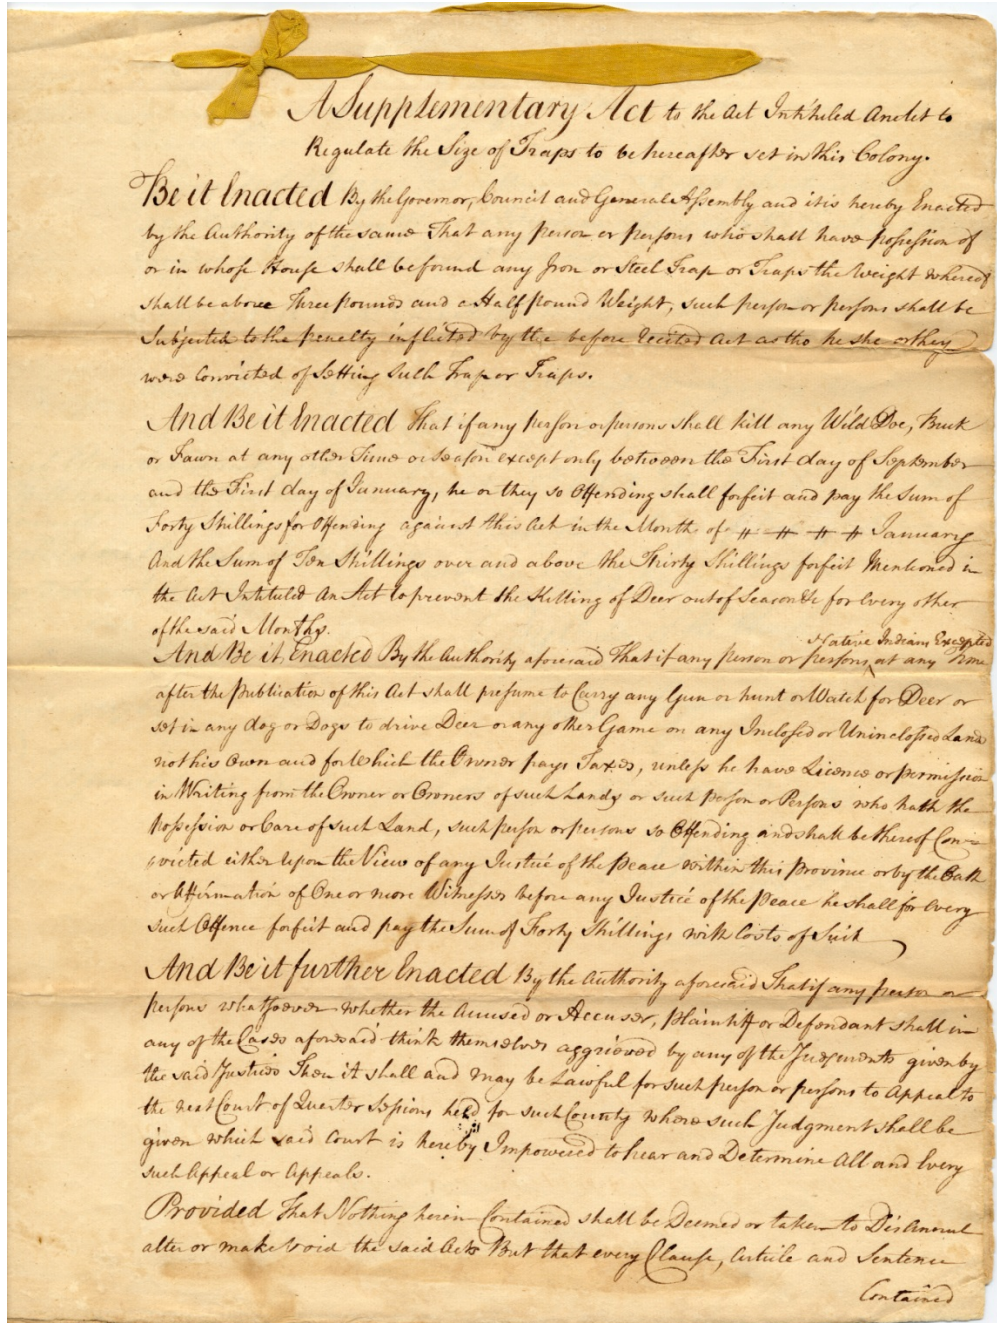 A Supplementary Act to the Act Intituled An Act to
Regulate the Size of Traps to be hereafter set in this Colony.
Be it Enacted By the Governor, Council and General Assembly and it is hereby Enacted
by the Authority of the same That any person or persons who shall have possession of
or in whose House shall be found any Iron or Steel Trap or Traps the Weight whereof
shall be above Three pounds and a Half pound Weight, such person or persons shall be
Subjected to the penalty inflicted by the before recited Act as tho he she or they
were Convicted of Setting such Trap or Traps.
And Be it Enacted That if any person or persons shall kill any Wild Doe, Buck
or Fawn at any other Time or Season except only between the First day of September
and the First day of January, he or they so Offending shall forfeit and pay the Sum of
Forty Shillings for Offending against this Act in the Month of # # # # January
And the Sum of Ten Shillings over and above the Thirty Shillings forfeit Mentioned in
the Act Intituled An Act to prevent the Killing of Deer out of Season &c for every other
of the said Months.
Native Indians Excepted
And Be it Enacted By the Authority aforesaid That if any person or persons ‸ at any Time
after the Publication of this Act shall presume to Carry any Gun or hunt or Watch for Deer or
set in any dog or Dogs to drive Deer or any other Game on any Inclosed or Uninclossed Land
not his Own and for Which the Owner pays Taxes, unless he have Licence or permission
in Writing from the Owner or Owners of such Lands or such person or Persons who hath the
Possession or Care of such Land, such person or persons so Offending and shall be thereof Con=
=victed either Upon the View of any Justice of the Peace within this Province or by the Oath
or Affirmation of One or more Witnesses before any Justice of the Peace he shall for every
such Offence forfeit and pay the Sum of Forty Shillings with Costs of Suit
And Be it further Enacted By the Authority aforesaid That if any person or
persons whatsoever whether the Accused or Accuser, Plaintiff or Defendant shall in
any of the Cases aforesaid think themselves aggrieved by any of the Judgments given by
the said Justices Then it shall and may be Lawful for such person or persons to Appeal to
the next Court of Quarter Sessions held for such County where such Judgment shall be
given which said Court is hereby Impowered to hear and Determine All and Every
such Appeal or Appeals.
Provided That Nothing herein Contained shall be Deemed or taken to DisAnnul
alter or make Void the said Acts But that every Clause, Article and Sentence
Contained